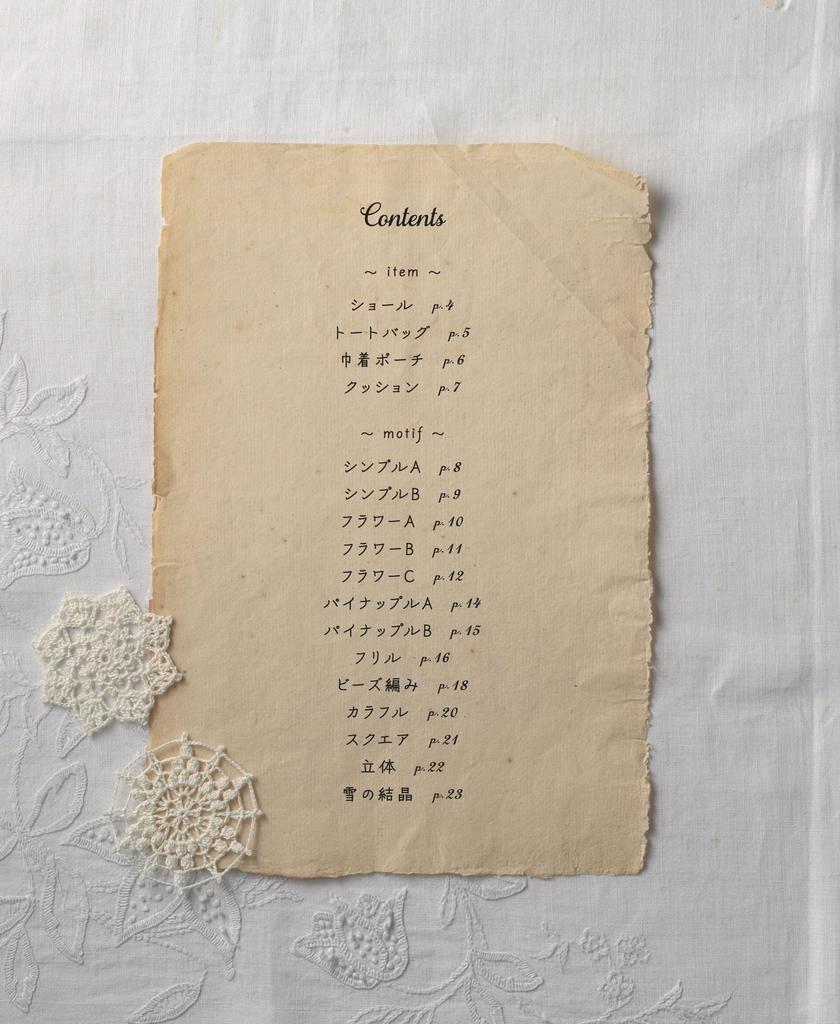 Contents
～ item ～
ショール p.4
トートバッグ p.5
巾着ポーチ p.6
クッション p.7
～ motif ～
シンプルA p.8
シンプルB p.9
フラワーA p.10
フラワーB p.11
フラワーC p.12
パイナップルA p.14
パイナップルB p.15
フリル p.16
ビーズ編み p.18
カラフル p.20
スクエア p.21
立体 p.22
雪の結晶 p.23